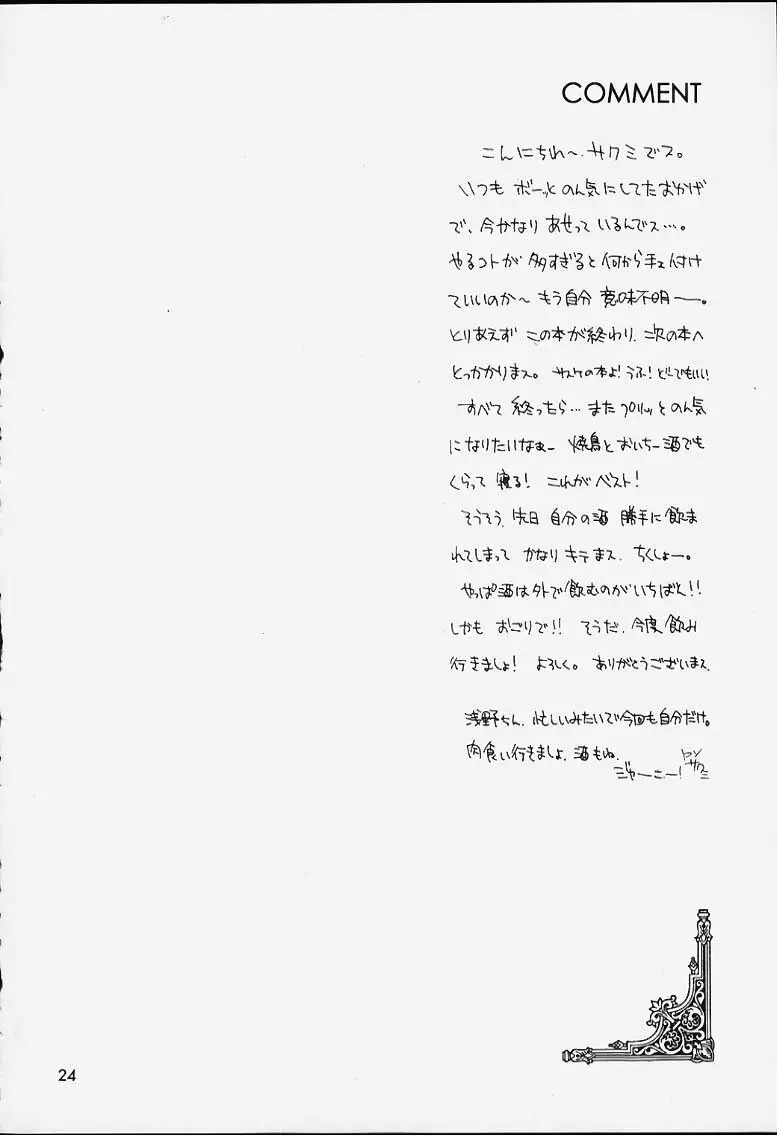 COMMENT
こんにちわ〜.サクミでス。
いつも ボーッと のん気にしてたおかげ
で、今かなり あせって いるんでス…。
やるコトが 多すぎると 何から手え付け
ていいのか〜 もう自分 意味不明ー。
とりあえず この本が終わり. 次の本へ
とっかかりまス。 サスケの本よ! うふ! どーでもいい
すべて 終ったら… また プリッと のん気
になりたいなぁー 焼鳥と おいちー酒でも
くらって 寝る! これが ベスト!
そうそう. 先日 自分の酒 勝手に飲ま
れてしまって かなり キテまス. ちくしょー。
やっぱ酒は外で飲むのがいちばん!!
しかも おごりで!! そうだ. 今度飲み
行きましょ! よろしく。 ありがとうございまス.
浅野ちん. 忙しいみたいで今回も自分だけ。
肉食い行きましょ. 酒もね.
じゃーにー!
サクミ
24